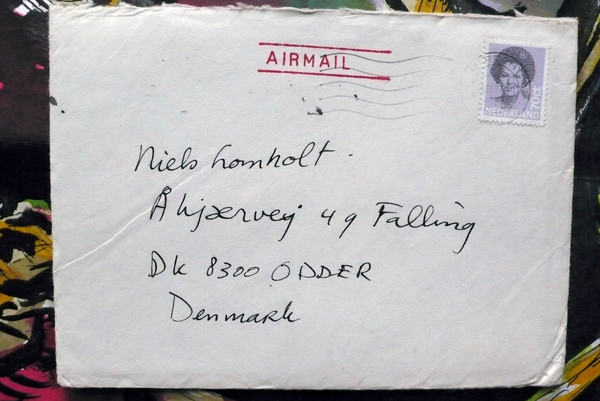 AIRMAIL
NEDERLAND 70ct
Niels Lomholt.
Åkjærvej 49 Falling
DK 8300 ODDER
Denmark